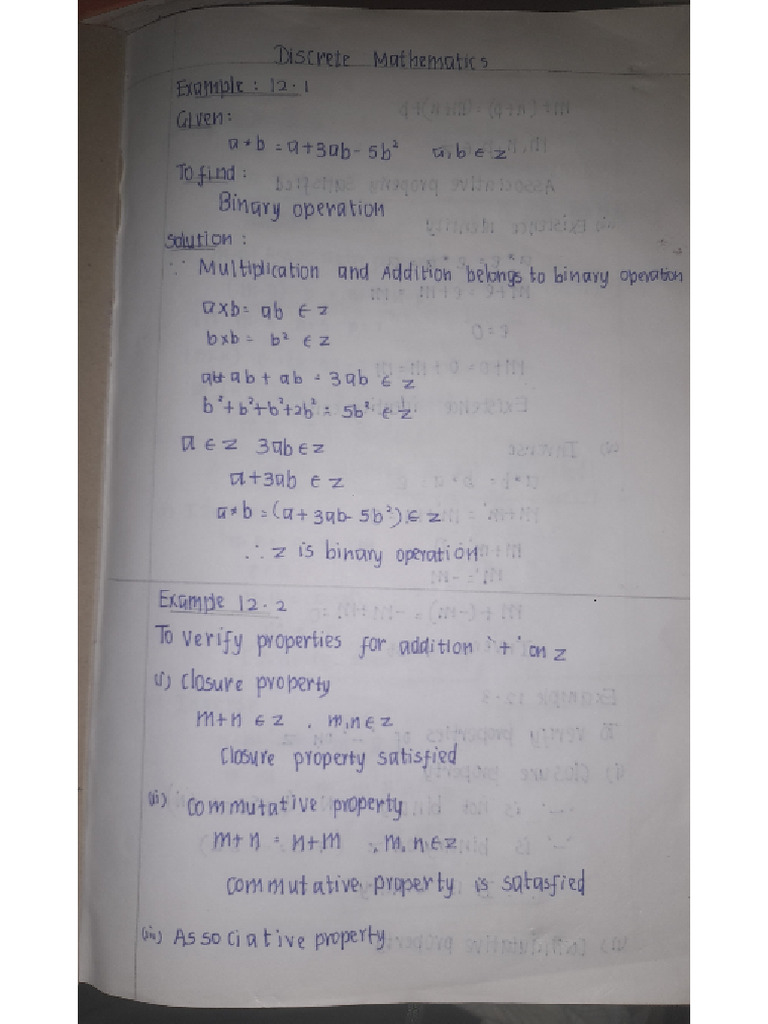 Discrete Mathematics
Example : 12.1
Given:
a * b = a + 3ab - 5b² a, b ∈ z
To find :
Binary operation
Solution :
∵ Multiplication and Addition belongs to binary operation
a x b = ab ∈ z
b x b = b² ∈ z
ab + ab = 3ab ∈ z
b² + b² + b² + 2b² = 5b² ∈ z
a ∈ z 3ab ∈ z
a + 3ab ∈ z
a * b = (a + 3ab - 5b²) ∈ z
∴ z is binary operation
Example 12.2
To verify properties for addition '+' on z
(i) closure property
m + n ∈ z , m, n ∈ z
closure property satisfied
(ii) commutative property
m + n = n + m , m, n ∈ z
commutative property is satasfied
(iii) Associative property